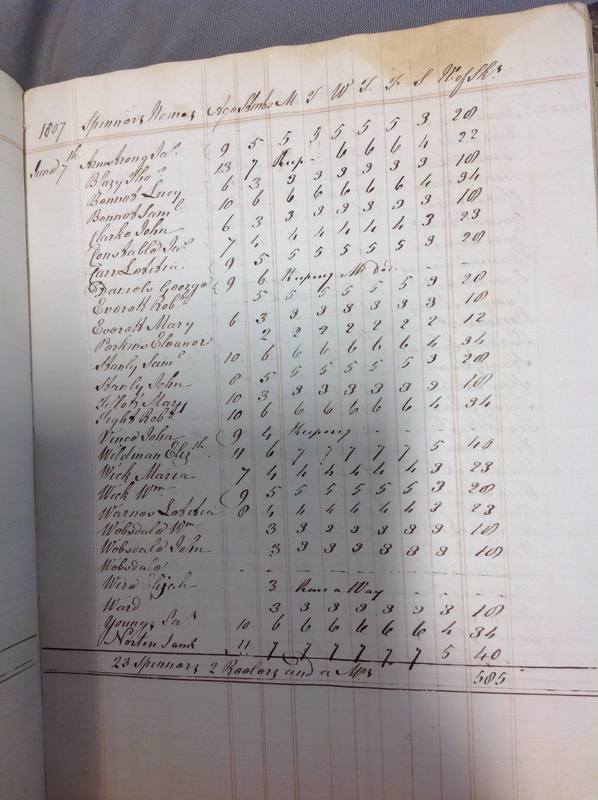 1807 Spinners Names Age Stints M T W T F S No of Sks
June 7th Armstrong Jas. 9 5 5 5 5 5 5 3 28
Blazy Thos. 13 7 Reep - 6 6 6 4 22
Bonner Lucy 6 3 3 3 3 3 3 3 18
Bonner Saml 10 6 6 6 6 6 6 4 34
Clarke John 6 3 3 3 3 3 3 3 18
Constable Jas. 7 4 4 4 4 4 4 3 23
Carr Lovitia 9 5 5 5 5 5 5 3 28
Daniels George 9 6 Keeping - -
Everett Robt 5 5 5 5 5 5 3 28
Everett Mary 6 3 3 3 3 3 3 3 18
Perkins Eleanor 2 2 2 2 2 2 2 12
Stanly Saml 10 6 6 6 6 6 6 4 34
Stanly John 8 5 5 5 5 5 5 3 28
Tillott Mary 10 3 3 3 3 3 3 3 18
Tight Robt 10 6 6 6 6 6 6 4 34
Vince John 9 4 Keeping - - -
Wildman Elizth 11 6 7 7 7 7 7 5 40
Wick Maria 7 4 4 4 4 4 4 3 23
Wick Wm 9 5 5 5 5 5 5 3 28
Warnes Lovitia 8 4 4 4 4 4 4 3 23
Wobsdale Wm 3 3 3 3 3 3 3 18
Wobsdale John 3 3 3 3 3 3 3 18
Wobsdale - - - - - - - -
Wire Elijah 3 Ran a Way - - -
Ward 3 3 3 3 3 3 3 18
Youngs Jas. 10 6 6 6 6 6 6 4 34
Norton Saml 11 7 7 7 7 7 7 5 40
23 Spinners 2 Reelers and a Mrs 585